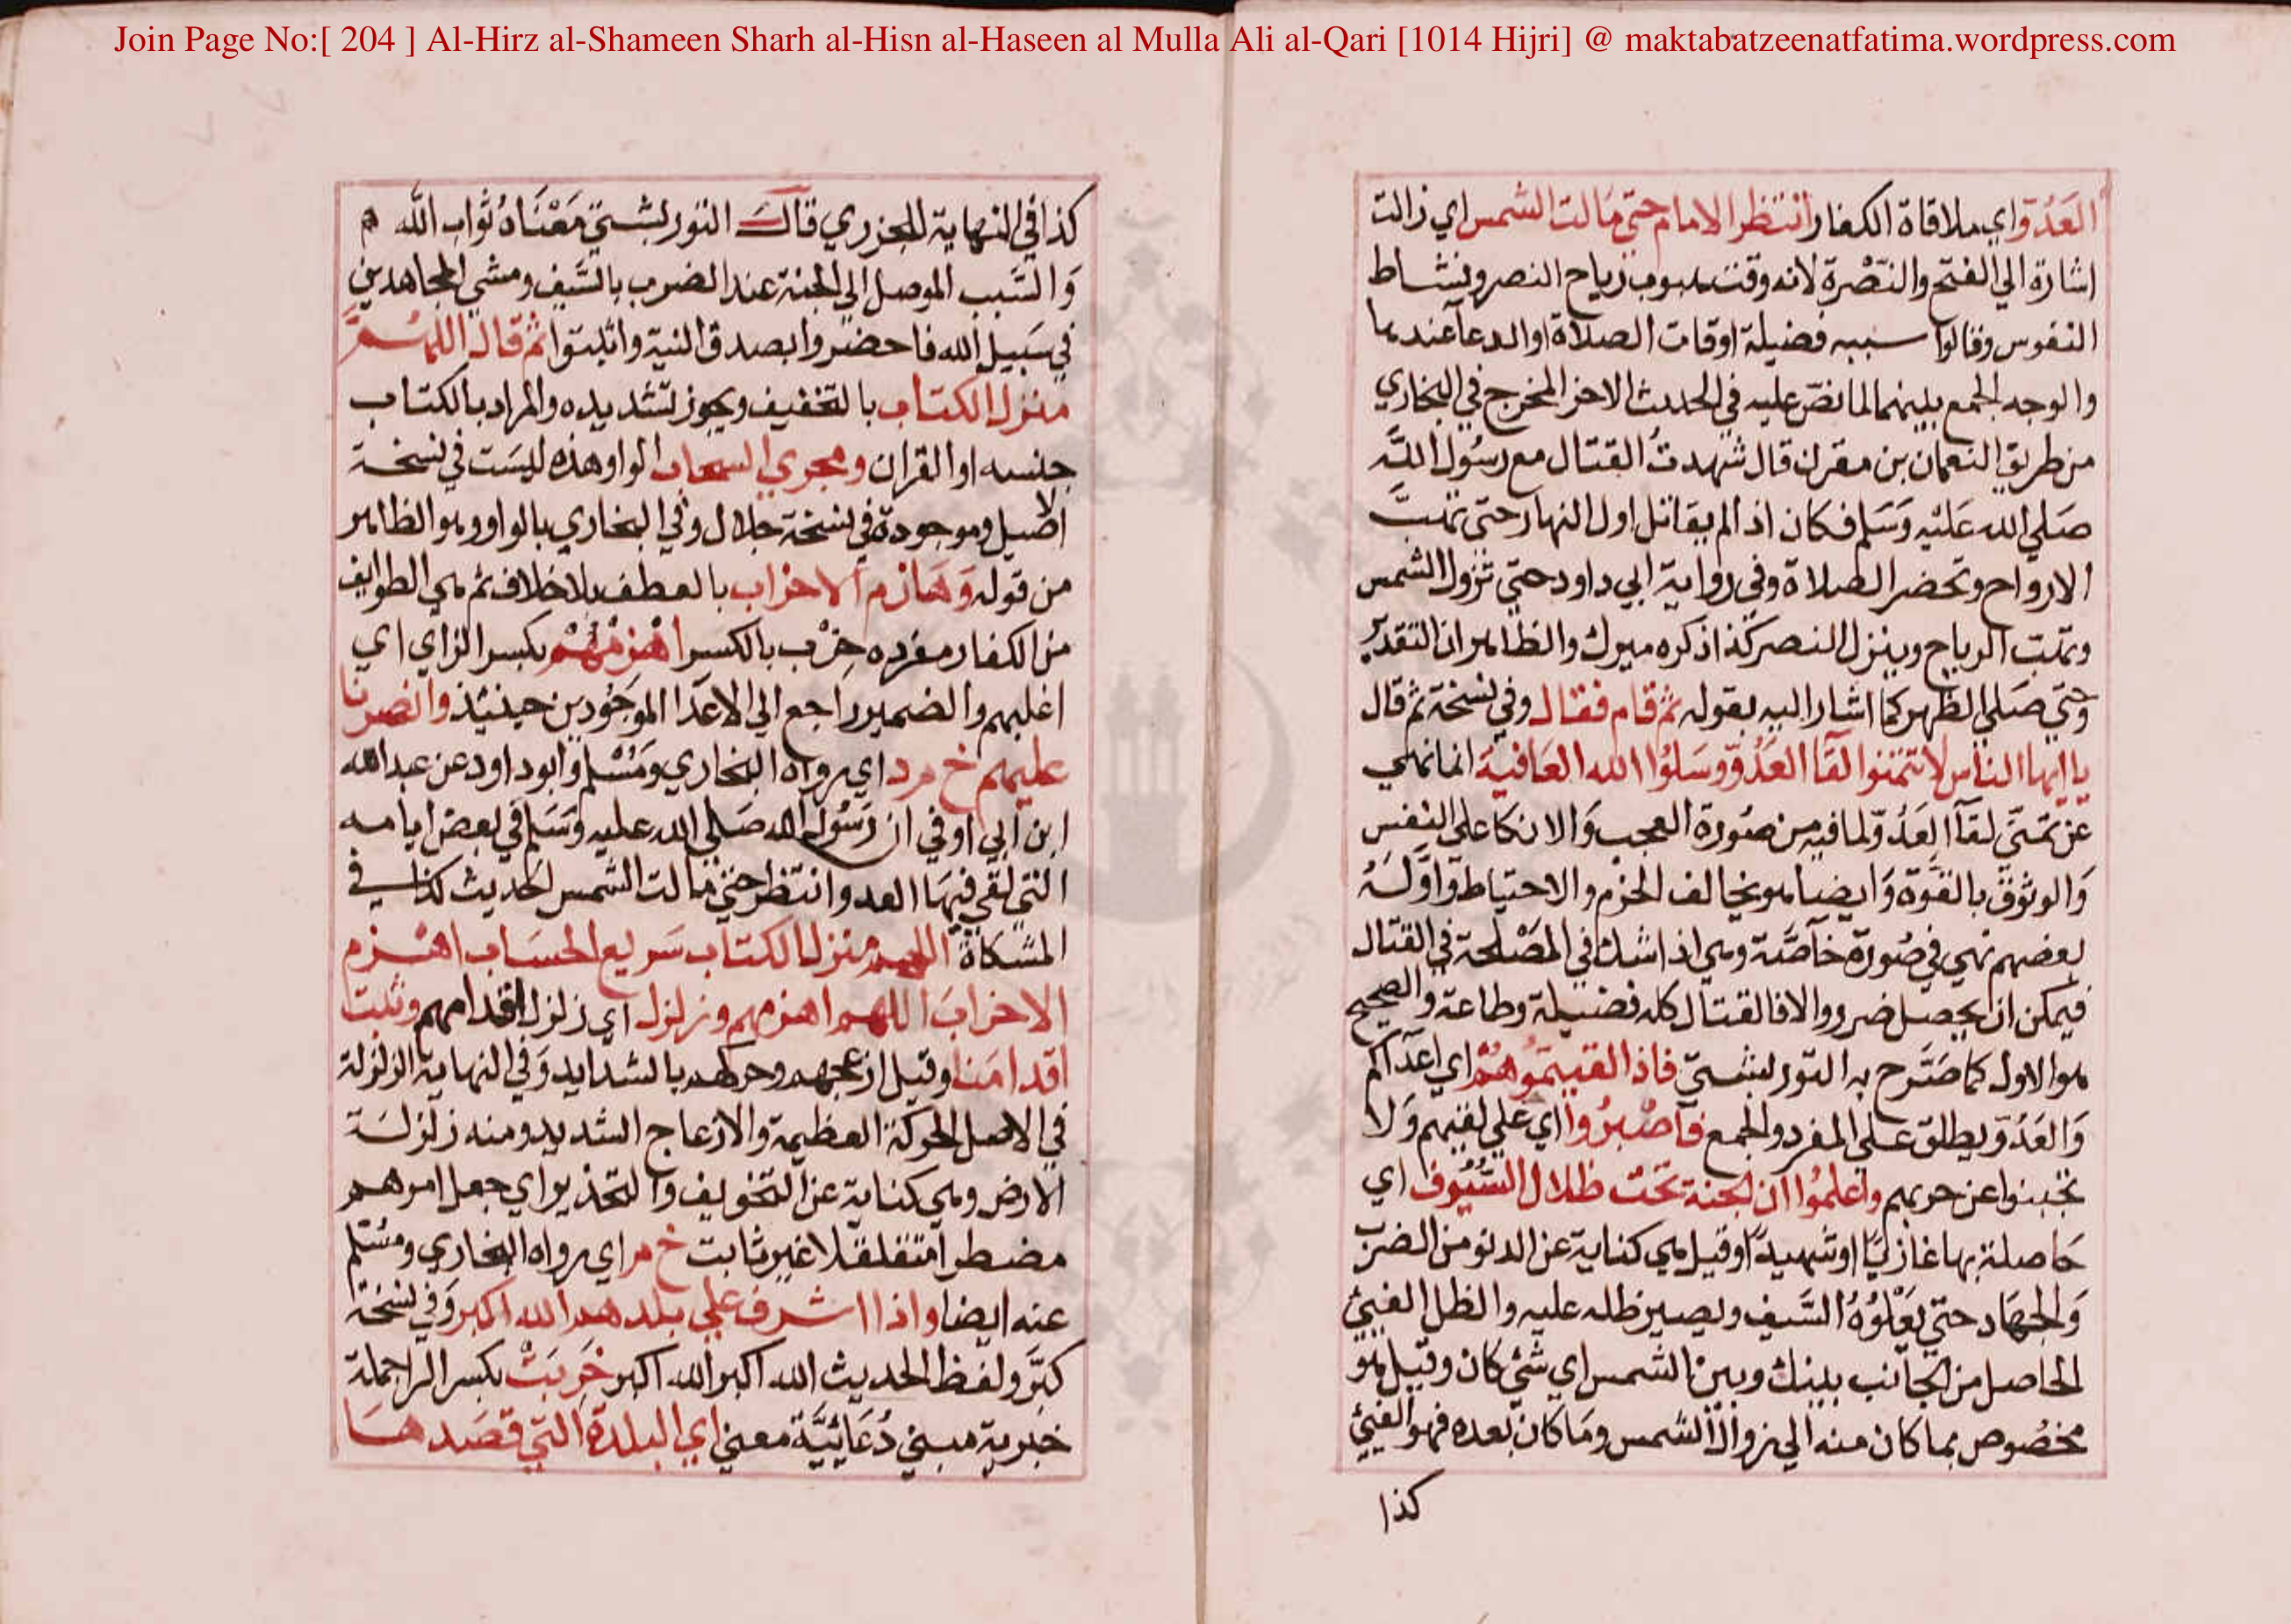 Join Page No:[ 204 ] Al-Hirz al-Shameen Sharh al-Hisn al-Haseen al Mulla Ali al-Qari [1014 Hijri] @ maktabatzeenatfatima.wordpress.com
العَدُوّ اي ملاقاة الكفار وانتظر الامام حتى مَالت الشمس اي زالت
اشارة الي الفتح والنّصْرة لانه وقت هبوب رياح النصر ونشاط
النفوس وقالوا سببه فضيلة اوقات الصلاة او الدعآ عندها
والوجه الجمع بينهما لما نصّ عليه في الحديث الاخر المخرج في البخاري
من طريق النعمان بن مقرن قال شهدتُ القتال مع رسُول اللّه
صَلي الله عَليْه وَسَلم فكان اذا لم يقاتل اول النهار حتى تهبّ
الارواح وتحضر الصلاة وفي رواية ابي داود حتى تزول الشمس
وتهب الرياح وينزل النصر كذا ذكره ميرك والظاهر ان التقدير
وحتي صَلي الظهر كما اشار اليه بقوله ثم قام فقال وفي نسخة ثم قال
يا ايها الناس لا تتمنوا لقآ العَدُوّ وسَلوُا الله العَافيَة انما نهي
عن تمنّي لقآ العَدُوّ لما فيه من صُورة العجب وَالاتكا على النفس
وَالوثوق بالقوّة وَايضا هو يخالف الحزم والاحتياط وَاوّلَهُ
بعضهم نهي في صُورة خآصّة وهي اذا شك في المصْلحة في القتال
فيمكن ان يحصل ضرر والا فالقتال كله فضيلة وطاعة والصحيح
هو الاول كما صَرّح به التوربشتيّ فاذا لقيتمُوهُم اي اعدآكم
وَالعَدُوّ يطلق على المفرد والجمع فآصْبرُوا اي علي لقيهم وَلا
تجبنوا عن حربهم واعلموُا ان الجنة تحْت ظلال السُّيُوف اي
حَاصلة بها غازيًا او شهيدًا وقيل هي كناية عن الدنو من الضرب
وَالجهَاد حتّي يَعْلوُهُ السَّيف ويصير ظله عليه والظل الفيئ
الحاصل من الجانب بينك وبين الشمس اي شئ كان وقيل هو
مخصُوص بما كان منه الي زوال الشمس ومَا كان بعده فهو الفيئ
كذا
كذا في النهاية للجزري قالَ التوربشتيّ مَعْنَاهُ ثواب الله
وَالسَّبب الموصل الى الجنة عند الضرب بالسَّيف ومشي المجاهدين
في سَبيل الله فاحضروا بصدق النية واثبتوا ثم قال اللهُمَّ
منزل الكتاب بالتخفيف ويجوز تشديده والمراد بالكتاب
جنسه او القران ومجري السحاب الواو هذه ليسَت في نسخة
الاصيل وموجودة في نسخة جلال وفي البخاري بالواو وهو الظاهر
من قوله وَهَازم الاحزاب بالعطف بلا خلاف ثم هي الطوايف
من الكفار مفرده حِزْب بالكسر اهْزمْهُمْ بكسر الزاي اي
اغلبهم والضمير راجع الي الاعدَا الموجُودين حينئذ وانصرنا
عليهم خ م د اي رواه البخاري ومُسْلم وَابو داود عن عبد الله
ابن ابي اوفي ان رَسُول الله صَلي الله عليه وَسَلم في بعض ايامه
التي لقي فيهَا العدو انتظر حتى مَالت الشمس الحديث كذا في
المشكاة اللهم منزل الكتاب سَريع الحسَاب اهْزم
الاحزابَ اللهم اهزمهم وزلزل اي زلزل اقدامهم وثبت
اقدامَنا وقيل ازعجهم وحركهم بالشدايد وَفي النهاية الزلزلة
في الاصل الحركة العظيمة والازعاج الشديد ومنه زلزلة
الارض وهي كناية عن التخويف والتحذير اي جعل امرهم
مضطرا متقلقلا غير ثابت خ م اي رواه البخاري ومُسْلم
عنه ايضا واذا اشرف علي بلدهم الله اكبر وَفي نسخة
كبَّر ولفظ الحديث الله اكبر الله اكبر خَرِبَتْ بكسر الرا جملة
خبرية مبني دُعَائيَّة معنى اي البلدة التي قصَدهَا